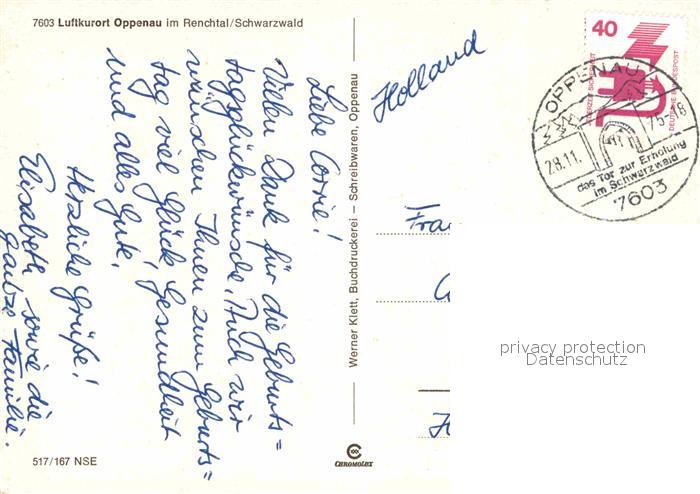 7603 Luftkurort Oppenau im Renchtal/Schwarzwald
Liebe Corrie!
Vielen Dank für die Geburts=
tagsglückwünsche. Auch wir
wünschen Ihnen zum Geburts=
tag viel Glück, Gesundheit
und alles Gute.
Herzliche Grüße!
Elisabeth sowie die
ganze Familie.
517/167 NSE
Werner Klett, Buchdruckerei – Schreibwaren, Oppenau
CHROMOLUX
Holland
Fra
40
JEDERZEIT SICHERHEIT
DEUTSCHE BUNDESPOST
OPPENAU
28.11. 75-18
das Tor zur Erholung
im Schwarzwald
7603
privacy protection
Datenschutz